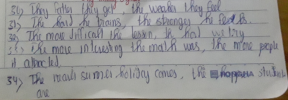 They fatter they get, the weaker they feel
The hard he trains, the stronger he feels
The more dificalt the lesson, the hard we try
the more intersting the math was, the more people
it attracted.
34) The more summer holiday comes, the happens students
are